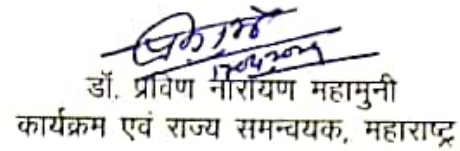 डॉ. प्रविण नारायण महामुनी
कार्यक्रम एवं राज्य समन्वयक, महाराष्ट्र